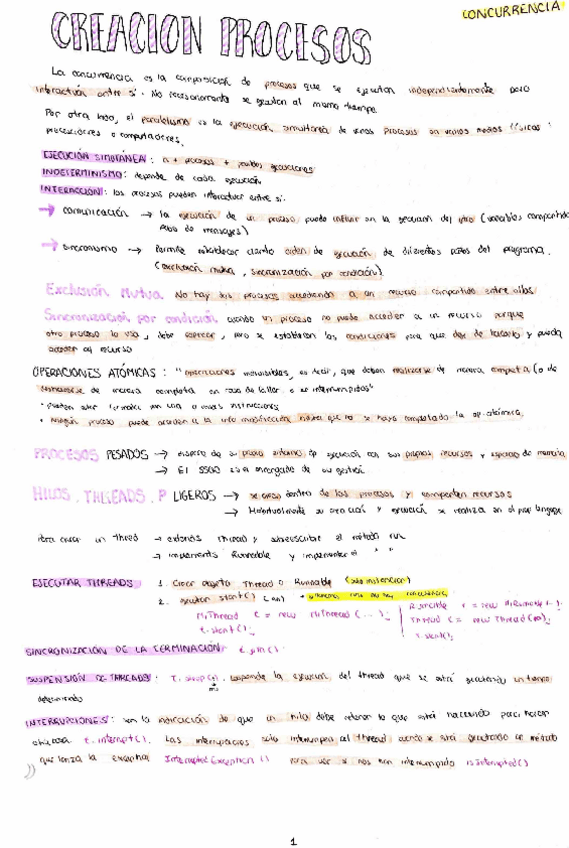 CONCURRENCIA
CREACION PROCESOS
La concurrencia es la composición de procesos que se ejecutan independientemente pero
interactúan entre sí. No necesariamente se ejecutan al mismo tiempo.
Por otro lado, el paralelismo es la ejecución simultánea de varios procesos en varios medios físicos:
procesadores o computadores.
EJECUCIÓN SIMULTÁNEA: n + procesos + posibles ejecuciones
INDETERMINISMO: depende de cada ejecución
INTERACCIÓN: los procesos pueden interactuar entre sí.
→ comunicación → la ejecución de un proceso puede influir en la ejecución del otro (variables compartidas
paso de mensajes)
→ sincronismo → Permite establecer cierto orden de ejecución de diferentes partes del programa.
(exclusión mutua, sincronización por condición)
Exclusión Mutua. No hay dos procesos accediendo a un recurso compartido entre ellos
Sincronización por condición cuando un proceso no puede acceder a un recurso porque
otro proceso lo usa, debe esperar, pero se establecen las condiciones para que deje de hacerlo y pueda
acceder al recurso
OPERACIONES ATÓMICAS: "operaciones indivisibles, es decir, que deben realizarse de manera completa (o de
de manera completa en caso de fallar o ser interrumpidos"
* pueden estar formadas por una o más instrucciones
* Ningún proceso puede acceder a la info modificación hasta que no se haya completado la op. atómica.
PROCESOS PESADOS → dispone de su propio entorno de ejecución con sus propios recursos y espacio de memoria
→ El SSOO es el encargado de su gestión.
HILOS, THREADS, P LIGEROS → se crean dentro de los procesos y comparten recursos
→ Habitualmente su creación y ejecución se realiza en el prop lenguaje
Para crear un Thread → extends Thread y sobreescribir el método run
→ implements Runnable y implementar el " "
EJECUTAR THREADS 1. Crear objeto Thread o Runnable (solo instancian)
2. ejecutar start()
MiThread t = new MiThread(...);
t.start();
Runnable r = new MiRunnable(...);
Thread t = new Thread
t.start();
SINCRONIZACIÓN DE LA TERMINACIÓN: t.join()
SUSPENSIÓN DE THREADS: T.sleep( ). suspende la ejecución del thread que se está ejecutando un tiempo
determinado
INTERRUPCIONES: son la indicación de que un hilo debe detener lo que está haciendo para hacer
otra cosa t.interrupt(). Las interrupciones solo interrumpen al thread cuando se está ejecutando un método
que lanza la excepción InterruptedException() para ver si nos han interrumpido isInterrupted()
1